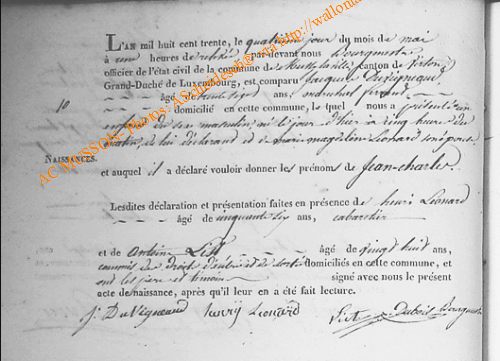 L'AN mil huit cent trente, le quatrieme jour du mois de mai
à heures de par-devant nous Bourgmestre
officier de l'état civil de la commune de canton de
Grand-Duché de Luxembourg, est comparu Jacques
âgé de ans, marechal
10 domicilié en cette commune, le quel nous a présenté un
enfant du sexe masculin, né le jour d'hier à cinq heures du
matin, de lui déclarant et de marie magdelin Lionard son épouse
NAISSANCES.
et auquel il a déclaré vouloir donner les prénoms de Jean-charles.
Lesdites déclaration et présentation faites en présence de henri Lionard
âgé de cinquante six ans, cabaretier
et de List âgé de vingt huit ans,
commis des droits d'entrée et de sortie domiciliés en cette commune, et
ont les père et temoins signé avec nous le présent
acte de naissance, après qu'il leur en a été fait lecture.
J. DuVigneaud henry Lionard List Dubois Bourgmestre
AC MUSSON-Photos AS via http://wallonia